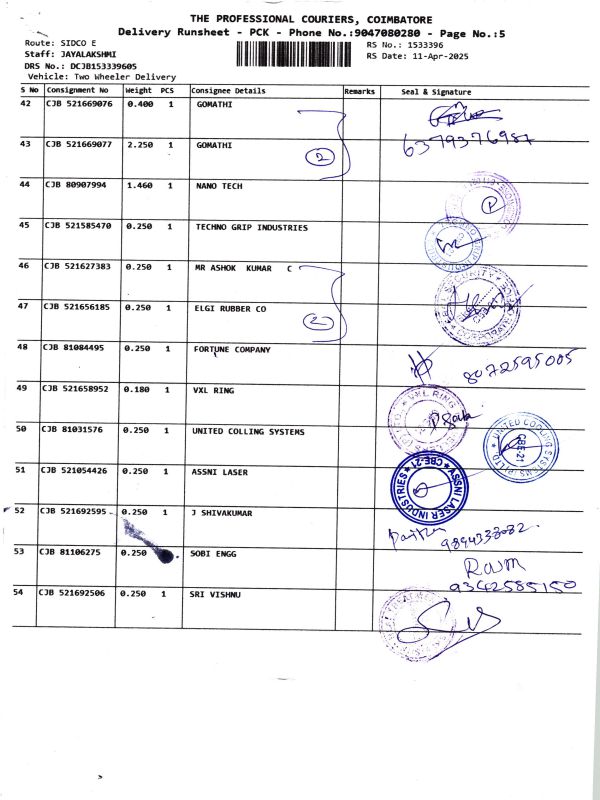 THE PROFESSIONAL COURIERS, COIMBATORE
Delivery Runsheet - PCK - Phone No.:9047080280 - Page No.:5
Route: SIDCO E
RS No.: 1533396
Staff: JAYALAKSHMI
RS Date: 11-Apr-2025
DRS No.: DCJB153339605
Vehicle: Two Wheeler Delivery
S No Consignment No Weight PCS Consignee Details Remarks Seal & Signature
42 CJB 521669076 0.400 1 GOMATHI
6379376987
43 CJB 521669077 2.250 1 GOMATHI
2
44 CJB 80907994 1.460 1 NANO TECH
P
45 CJB 521585470 0.250 1 TECHNO GRIP INDUSTRIES
46 CJB 521627383 0.250 1 MR ASHOK KUMAR C
SECURITY
47 CJB 521656185 0.250 1 ELGI RUBBER CO
2
48 CJB 81084495 0.250 1 FORTUNE COMPANY
8072595005
49 CJB 521658952 0.180 1 VXL RING
VXL RING
50 CJB 81031576 0.250 1 UNITED COLLING SYSTEMS
UNITED COOLING SYSTEMS (P) LTD
CBE-21
51 CJB 521054426 0.250 1 ASSNI LASER
ASSNI LASER INDUSTRIES
CBE-21
52 CJB 521692595 0.250 1 J SHIVAKUMAR
53 CJB 81106275 0.250 SOBI ENGG
9342585150
54 CJB 521692506 0.250 1 SRI VISHNU